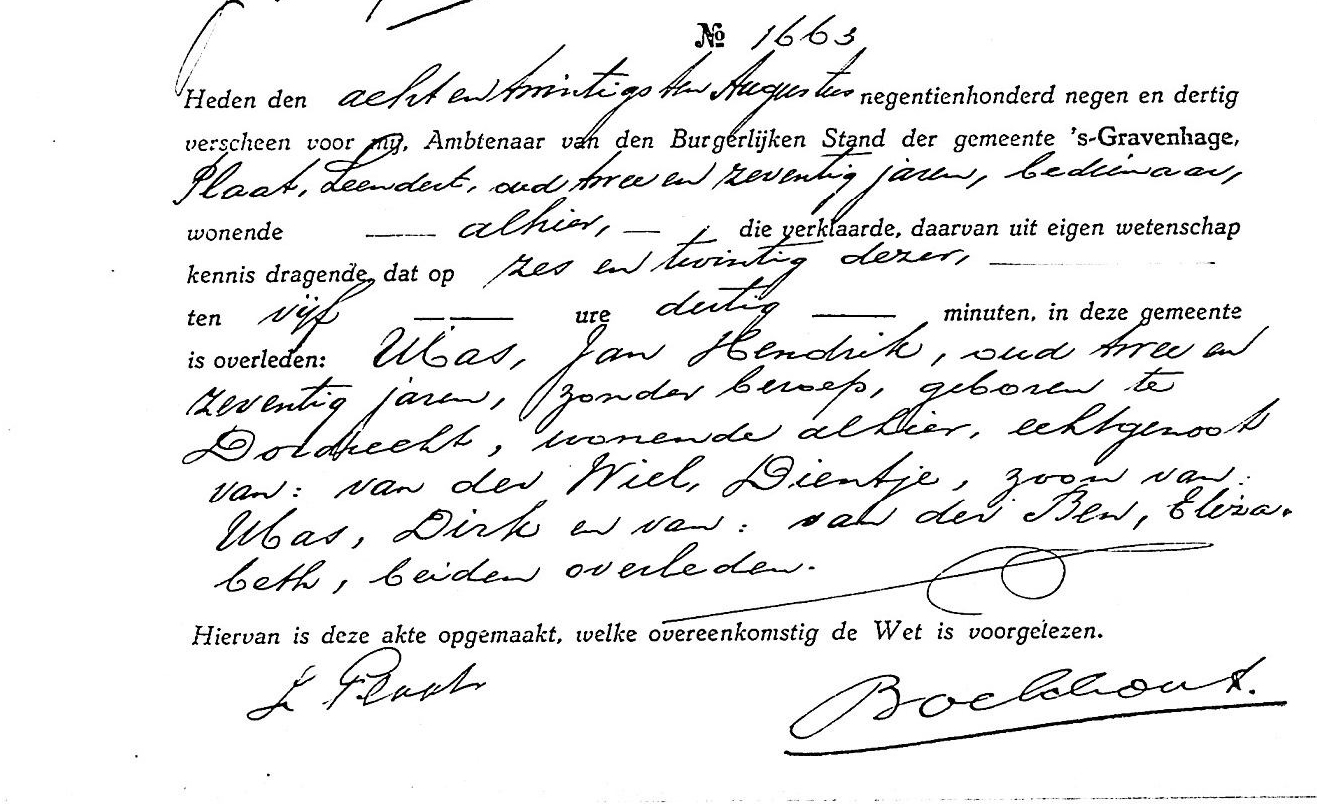 No 1663
Heden den acht en twintigsten Augustus negentienhonderd negen en dertig
verscheen voor mij, Ambtenaar van den Burgerlijken Stand der gemeente 's-Gravenhage,
Plaat, Leendert, oud twee en zeventig jaren, bedienaar,
wonende alhier, die verklaarde, daarvan uit eigen wetenschap
kennis dragende, dat op zes en twintig dezer,
ten vijf ure dertig minuten, in deze gemeente
is overleden: Maas, Jan Hendrik, oud twee en
zeventig jaren, zonder beroep, geboren te
Dordrecht, wonende alhier, echtgenoot
van: van der Wiel, Dientje, zoon van:
Maas, Dirk en van: van der Ben, Eliza-
beth, beiden overleden.
Hiervan is deze akte opgemaakt, welke overeenkomstig de Wet is voorgelezen.
L Plaat